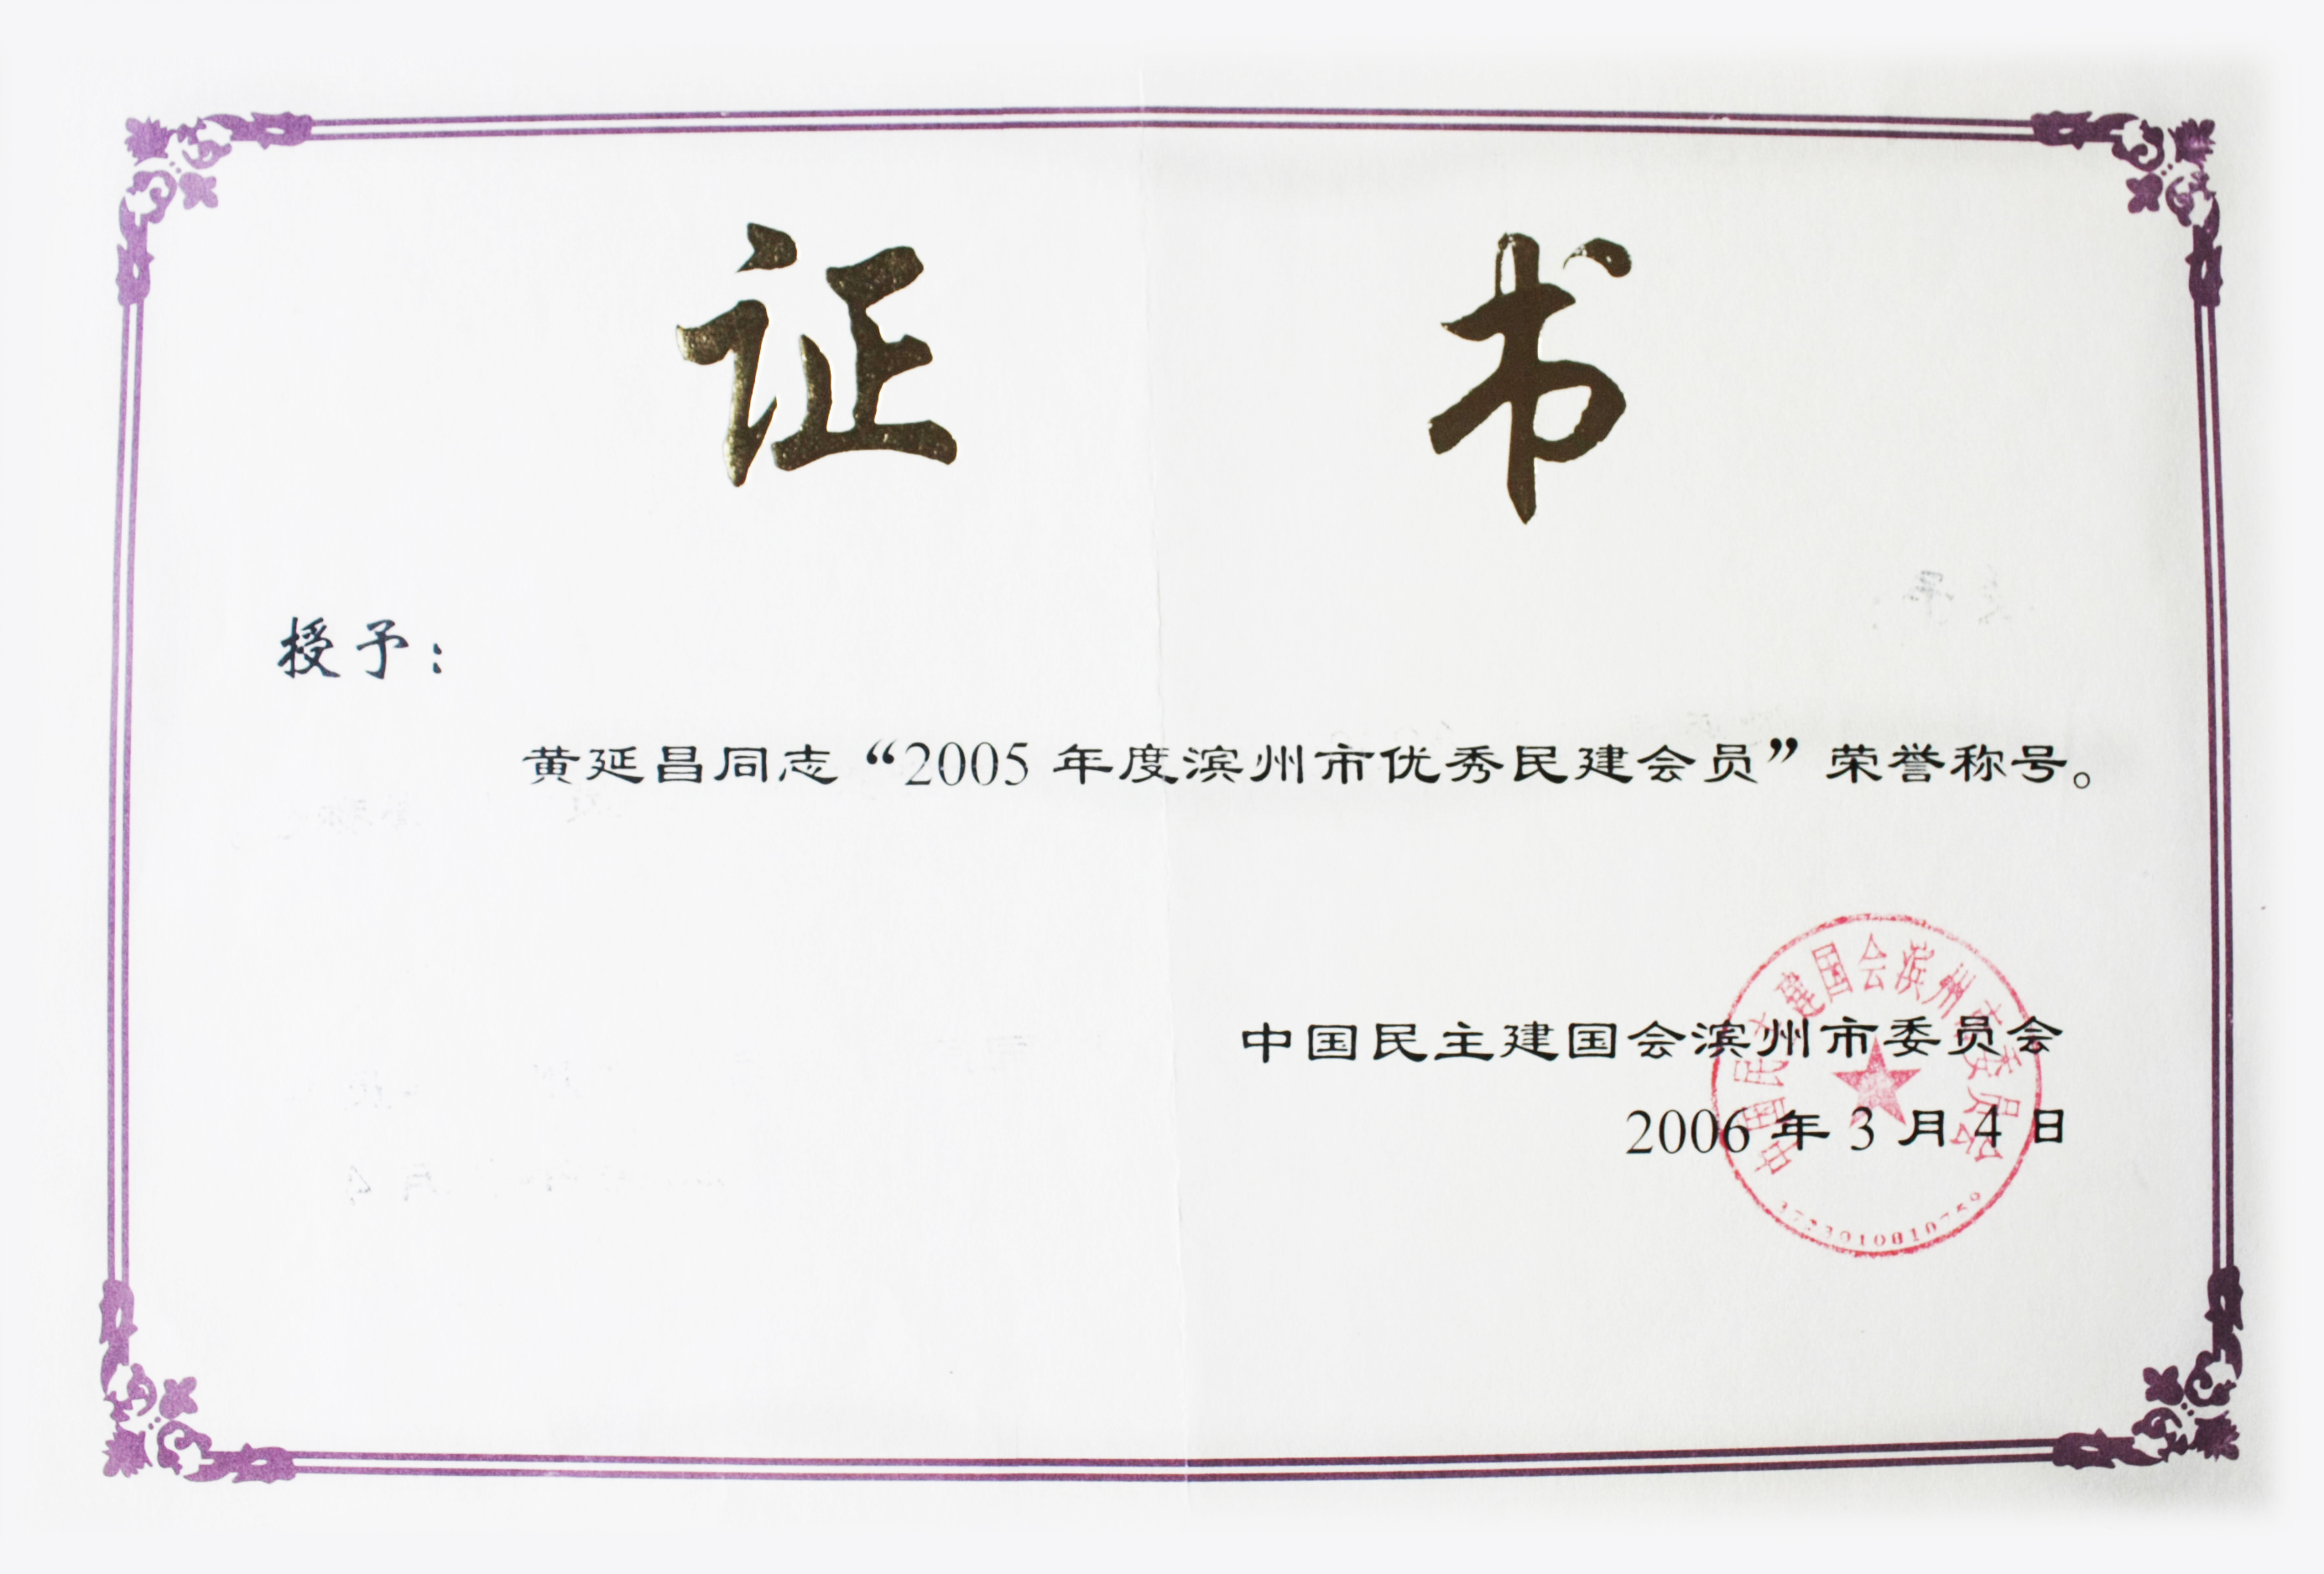 证书
授予：
黄延昌同志“2005年度滨州市优秀民建会员”荣誉称号。
中国民主建国会滨州市委员会
2006年3月4日
中国民主建国会滨州市委员会